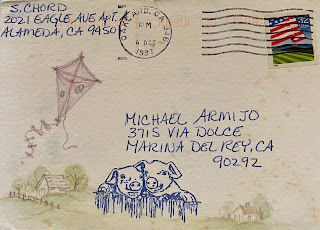 S. CHORD
2021 EAGLE AVE Apt.
ALAMEDA, CA 9450
OAKLAND, CA
PM
6 DEC
1997
32
USA
MICHAEL ARMIJO
3715 VIA DOLCE
MARINA DEL REY, CA
90292